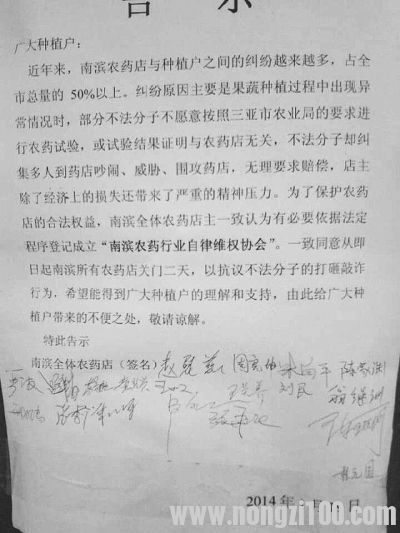 告 示
广大种植户：
近年来，南滨农药店与种植户之间的纠纷越来越多，占全
市总量的 50%以上。纠纷原因主要是果蔬种植过程中出现异
常情况时，部分不法分子不愿意按照三亚市农业局的要求进
行农药试验，或试验结果证明与农药店无关，不法分子却纠
集多人到药店吵闹、威胁、围攻药店，无理要求赔偿，店主
除了经济上的损失还带来了严重的精神压力。为了保护农药
店的合法权益，南滨全体农药店主一致认为有必要依据法定
程序登记成立“南滨农药行业自律维权协会”。一致同意从即
日起南滨所有农药店关门二天，以抗议不法分子的打砸敲诈
行为，希望能得到广大种植户的理解和支持，由此给广大种
植户带来的不便之处，敬请谅解。
特此告示
南滨全体农药店（签名）
刘民
2014 年 月 日
www.nongzi100.com